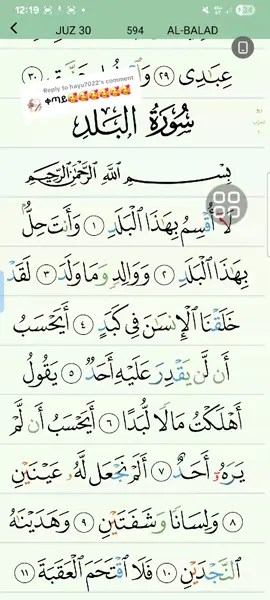 12:19
JUZ 30 594 AL-BALAD
عِبَٰدِى ٢٩
٣٠
Reply to hayu7022's comment
ቀጣይ🥰🥰🥰🥰🥰
سُورَةُ البَلَدِ
بِسْمِ ٱللَّهِ ٱلرَّحْمَٰنِ ٱلرَّحِيمِ
لَآ أُقْسِمُ بِهَٰذَا ٱلْبَلَدِ ١ وَأَنتَ حِلٌّۢ
بِهَٰذَا ٱلْبَلَدِ ٢ وَوَالِدٍ وَمَا وَلَدَ ٣ لَقَدْ
خَلَقْنَا ٱلْإِنسَٰنَ فِى كَبَدٍ ٤ أَيَحْسَبُ
أَن لَّن يَقْدِرَ عَلَيْهِ أَحَدٌ ٥ يَقُولُ
أَهْلَكْتُ مَالًا لُّبَدًا ٦ أَيَحْسَبُ أَن لَّمْ
يَرَهُۥٓ أَحَدٌ ٧ أَلَمْ نَجْعَل لَّهُۥ عَيْنَيْنِ
٨ وَلِسَانًا وَشَفَتَيْنِ ٩ وَهَدَيْنَٰهُ
ٱلنَّجْدَيْنِ ١٠ فَلَا ٱقْتَحَمَ ٱلْعَقَبَةَ ١١